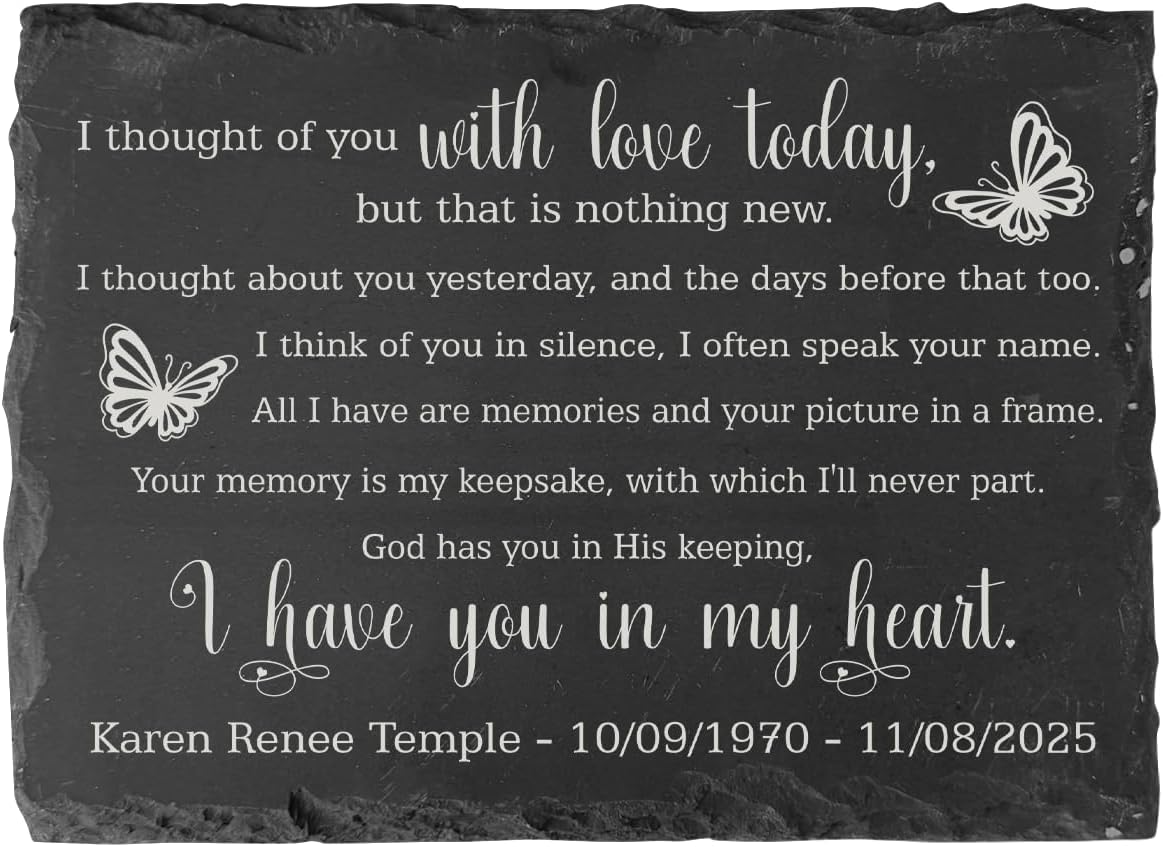 I thought of you with love today,
but that is nothing new.
I thought about you yesterday, and the days before that too.
I think of you in silence, I often speak your name.
All I have are memories and your picture in a frame.
Your memory is my keepsake, with which I'll never part.
God has you in His keeping,
I have you in my heart.
Karen Renee Temple - 10/09/1970 - 11/08/2025